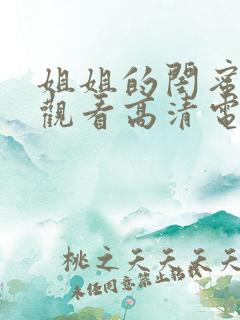 姐姐的閨蜜
觀看高清電
桃之夭夭夭夭
未經同意禁止轉載